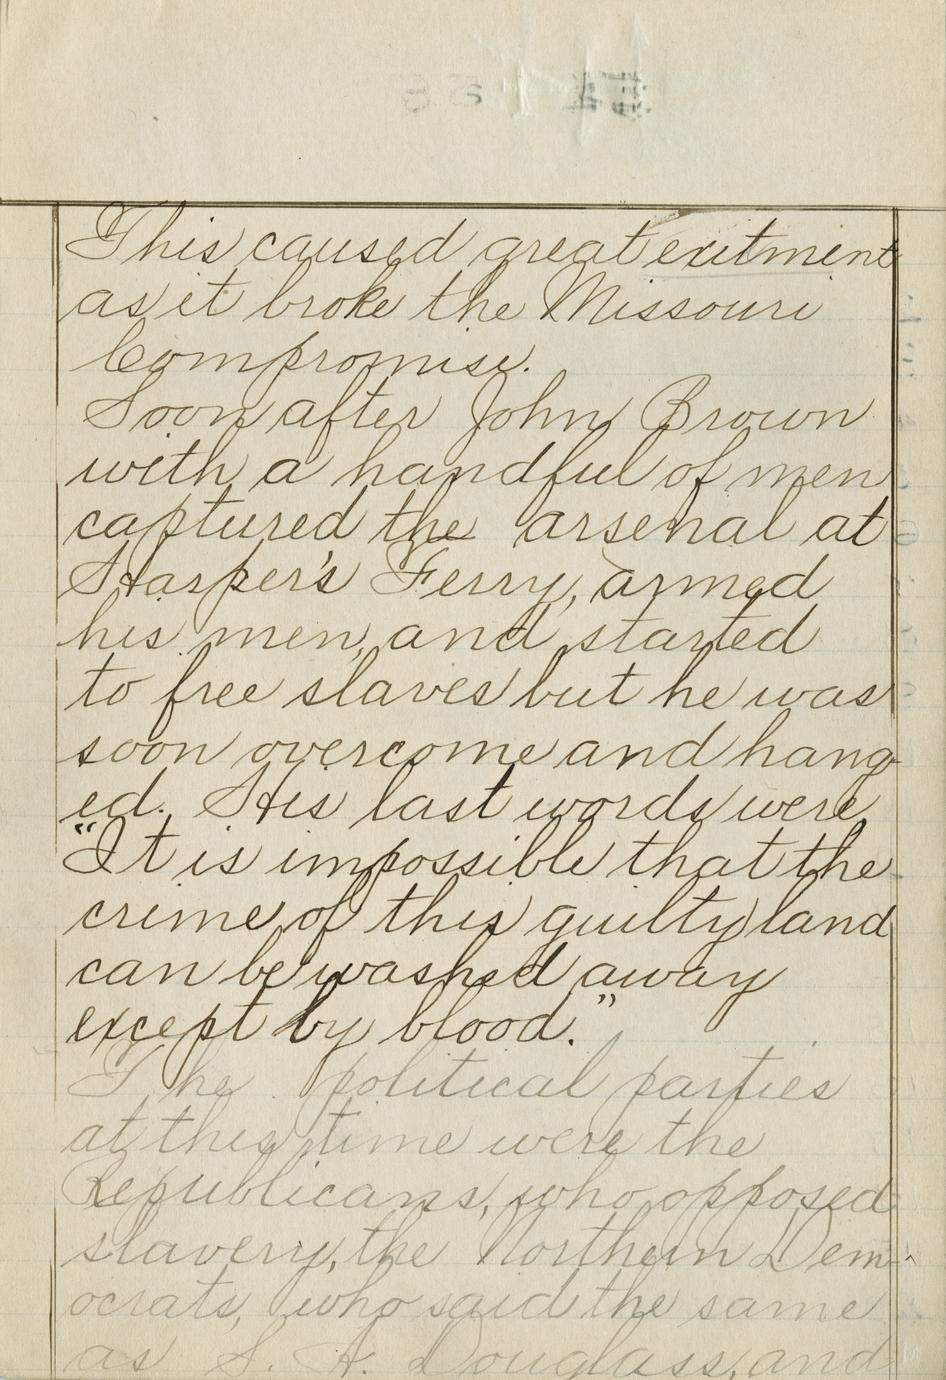 This caused great exitment
as it broke the Missouri
Compromise.
Soon after John Brown
with a handful of men
captured the arsenal at
Harper's Ferry, armed
his men, and started
to free slaves but he was
soon overcome and hang-
ed. His last words were
"It is impossible that the
crime of this guilty land
can be washed away
except by blood."
The political parties
at this time were the
Republicans, who opposed
slavery, the Northern Dem-
ocrats, who said the same
as S. A. Douglass, and